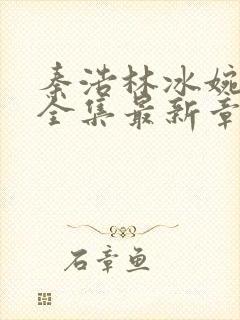 秦浩林冰婉
全集最新章
石章鱼